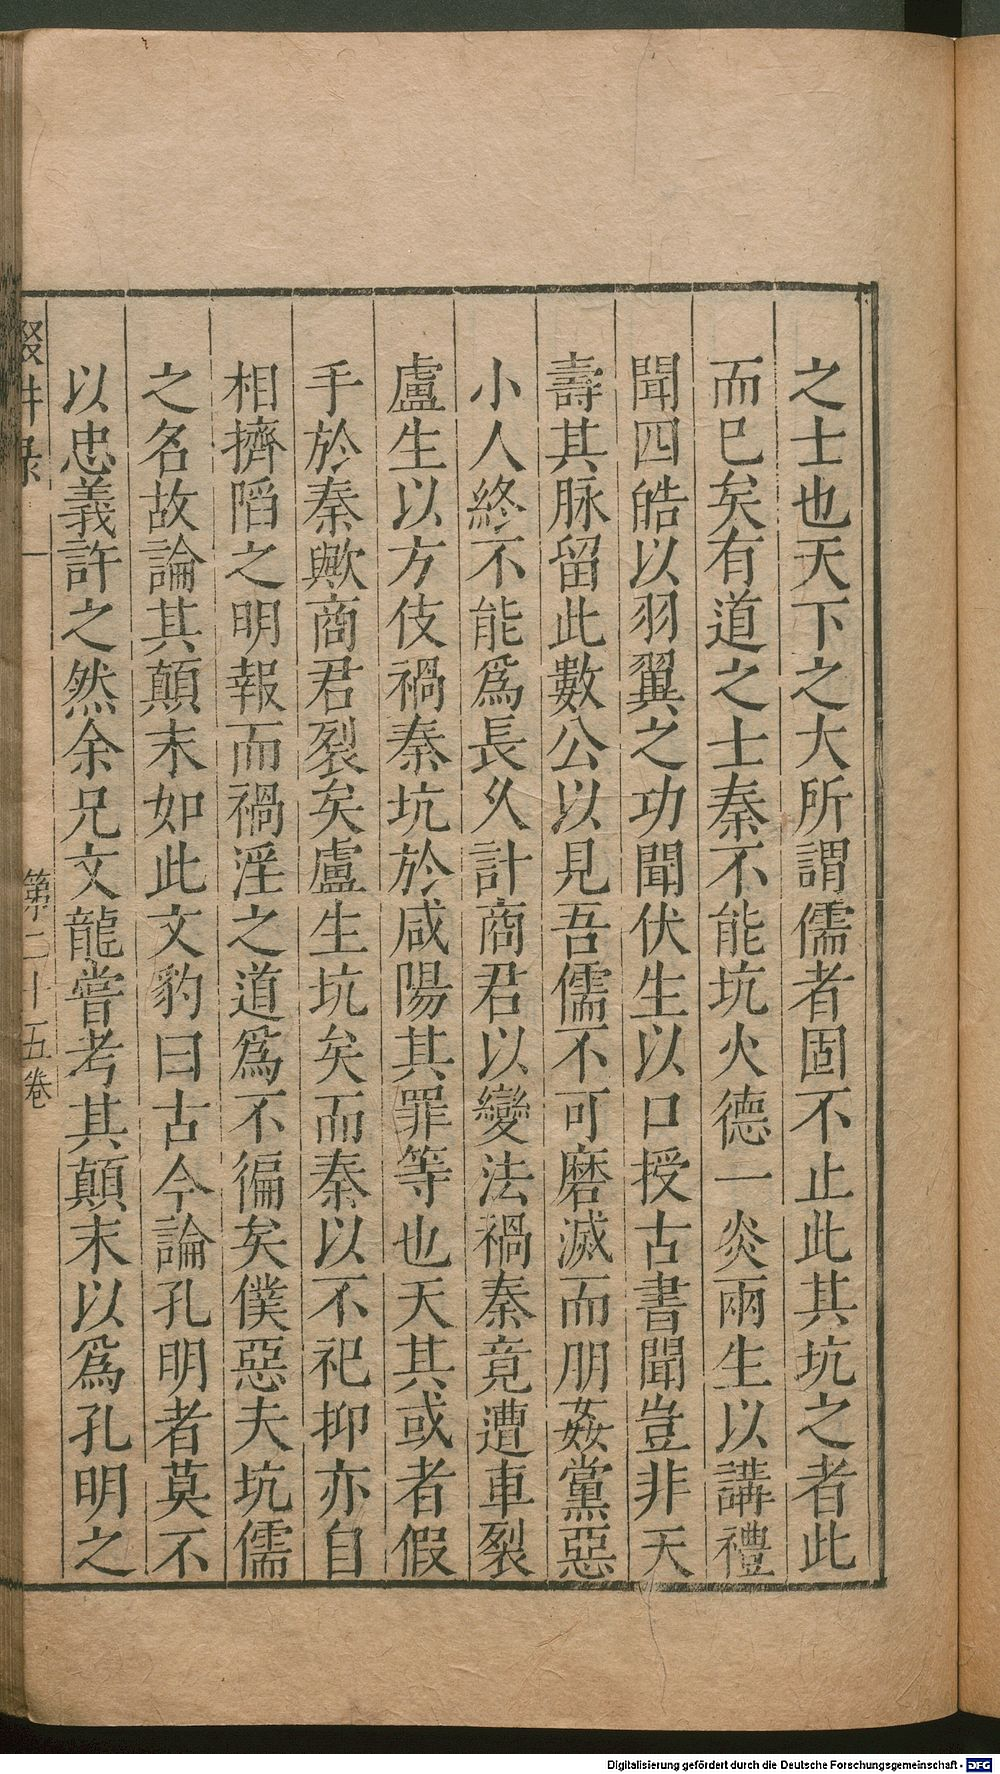 之士也天下之大所謂儒者固不止此其坑之者此
而已矣有道之士秦不能坑火德一炎兩生以講禮
聞四皓以羽翼之功聞伏生以口授古書聞豈非天
壽其脉留此數公以見吾儒不可磨滅而朋姦黨惡
小人終不能爲長久計商君以變法禍秦竟遭車裂
盧生以方伎禍秦坑於咸陽其罪等也天其或者假
手於秦歟商君裂矣盧生坑矣而秦以不祀抑亦自
相擠陷之明報而禍淫之道爲不徧矣僕惡夫坑儒
之名故論其顛末如此文豹曰古今論孔明者莫不
以忠義許之然余兄文龍嘗考其顛末以爲孔明之
第二十五卷
Digitalisierung gefördert durch die Deutsche Forschungsgemeinschaft - DFG